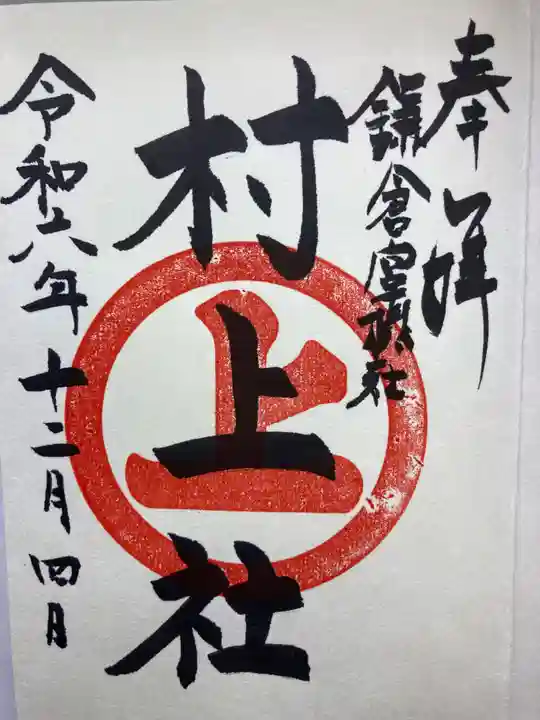 奉拝
鎌倉宮摂社
村上社
上
令和六年十二月四日